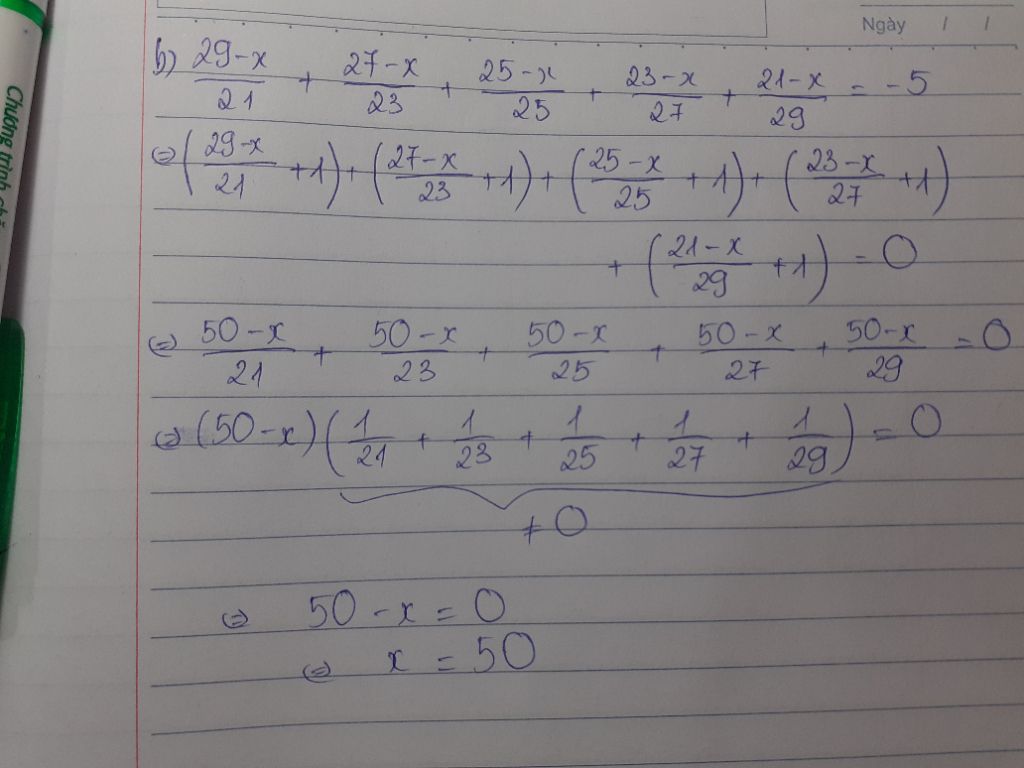 Ngày / /
b) \frac{29-x}{21} + \frac{27-x}{23} + \frac{25-x}{25} + \frac{23-x}{27} + \frac{21-x}{29} = -5
⇔ (\frac{29-x}{21} + 1) + (\frac{27-x}{23} + 1) + (\frac{25-x}{25} + 1) + (\frac{23-x}{27} + 1)
+ (\frac{21-x}{29} + 1) = 0
⇔ \frac{50-x}{21} + \frac{50-x}{23} + \frac{50-x}{25} + \frac{50-x}{27} + \frac{50-x}{29} = 0
⇔ (50-x)(\frac{1}{21} + \frac{1}{23} + \frac{1}{25} + \frac{1}{27} + \frac{1}{29}) = 0
≠ 0
⇔ 50 - x = 0
⇔ x = 50
Chương trình